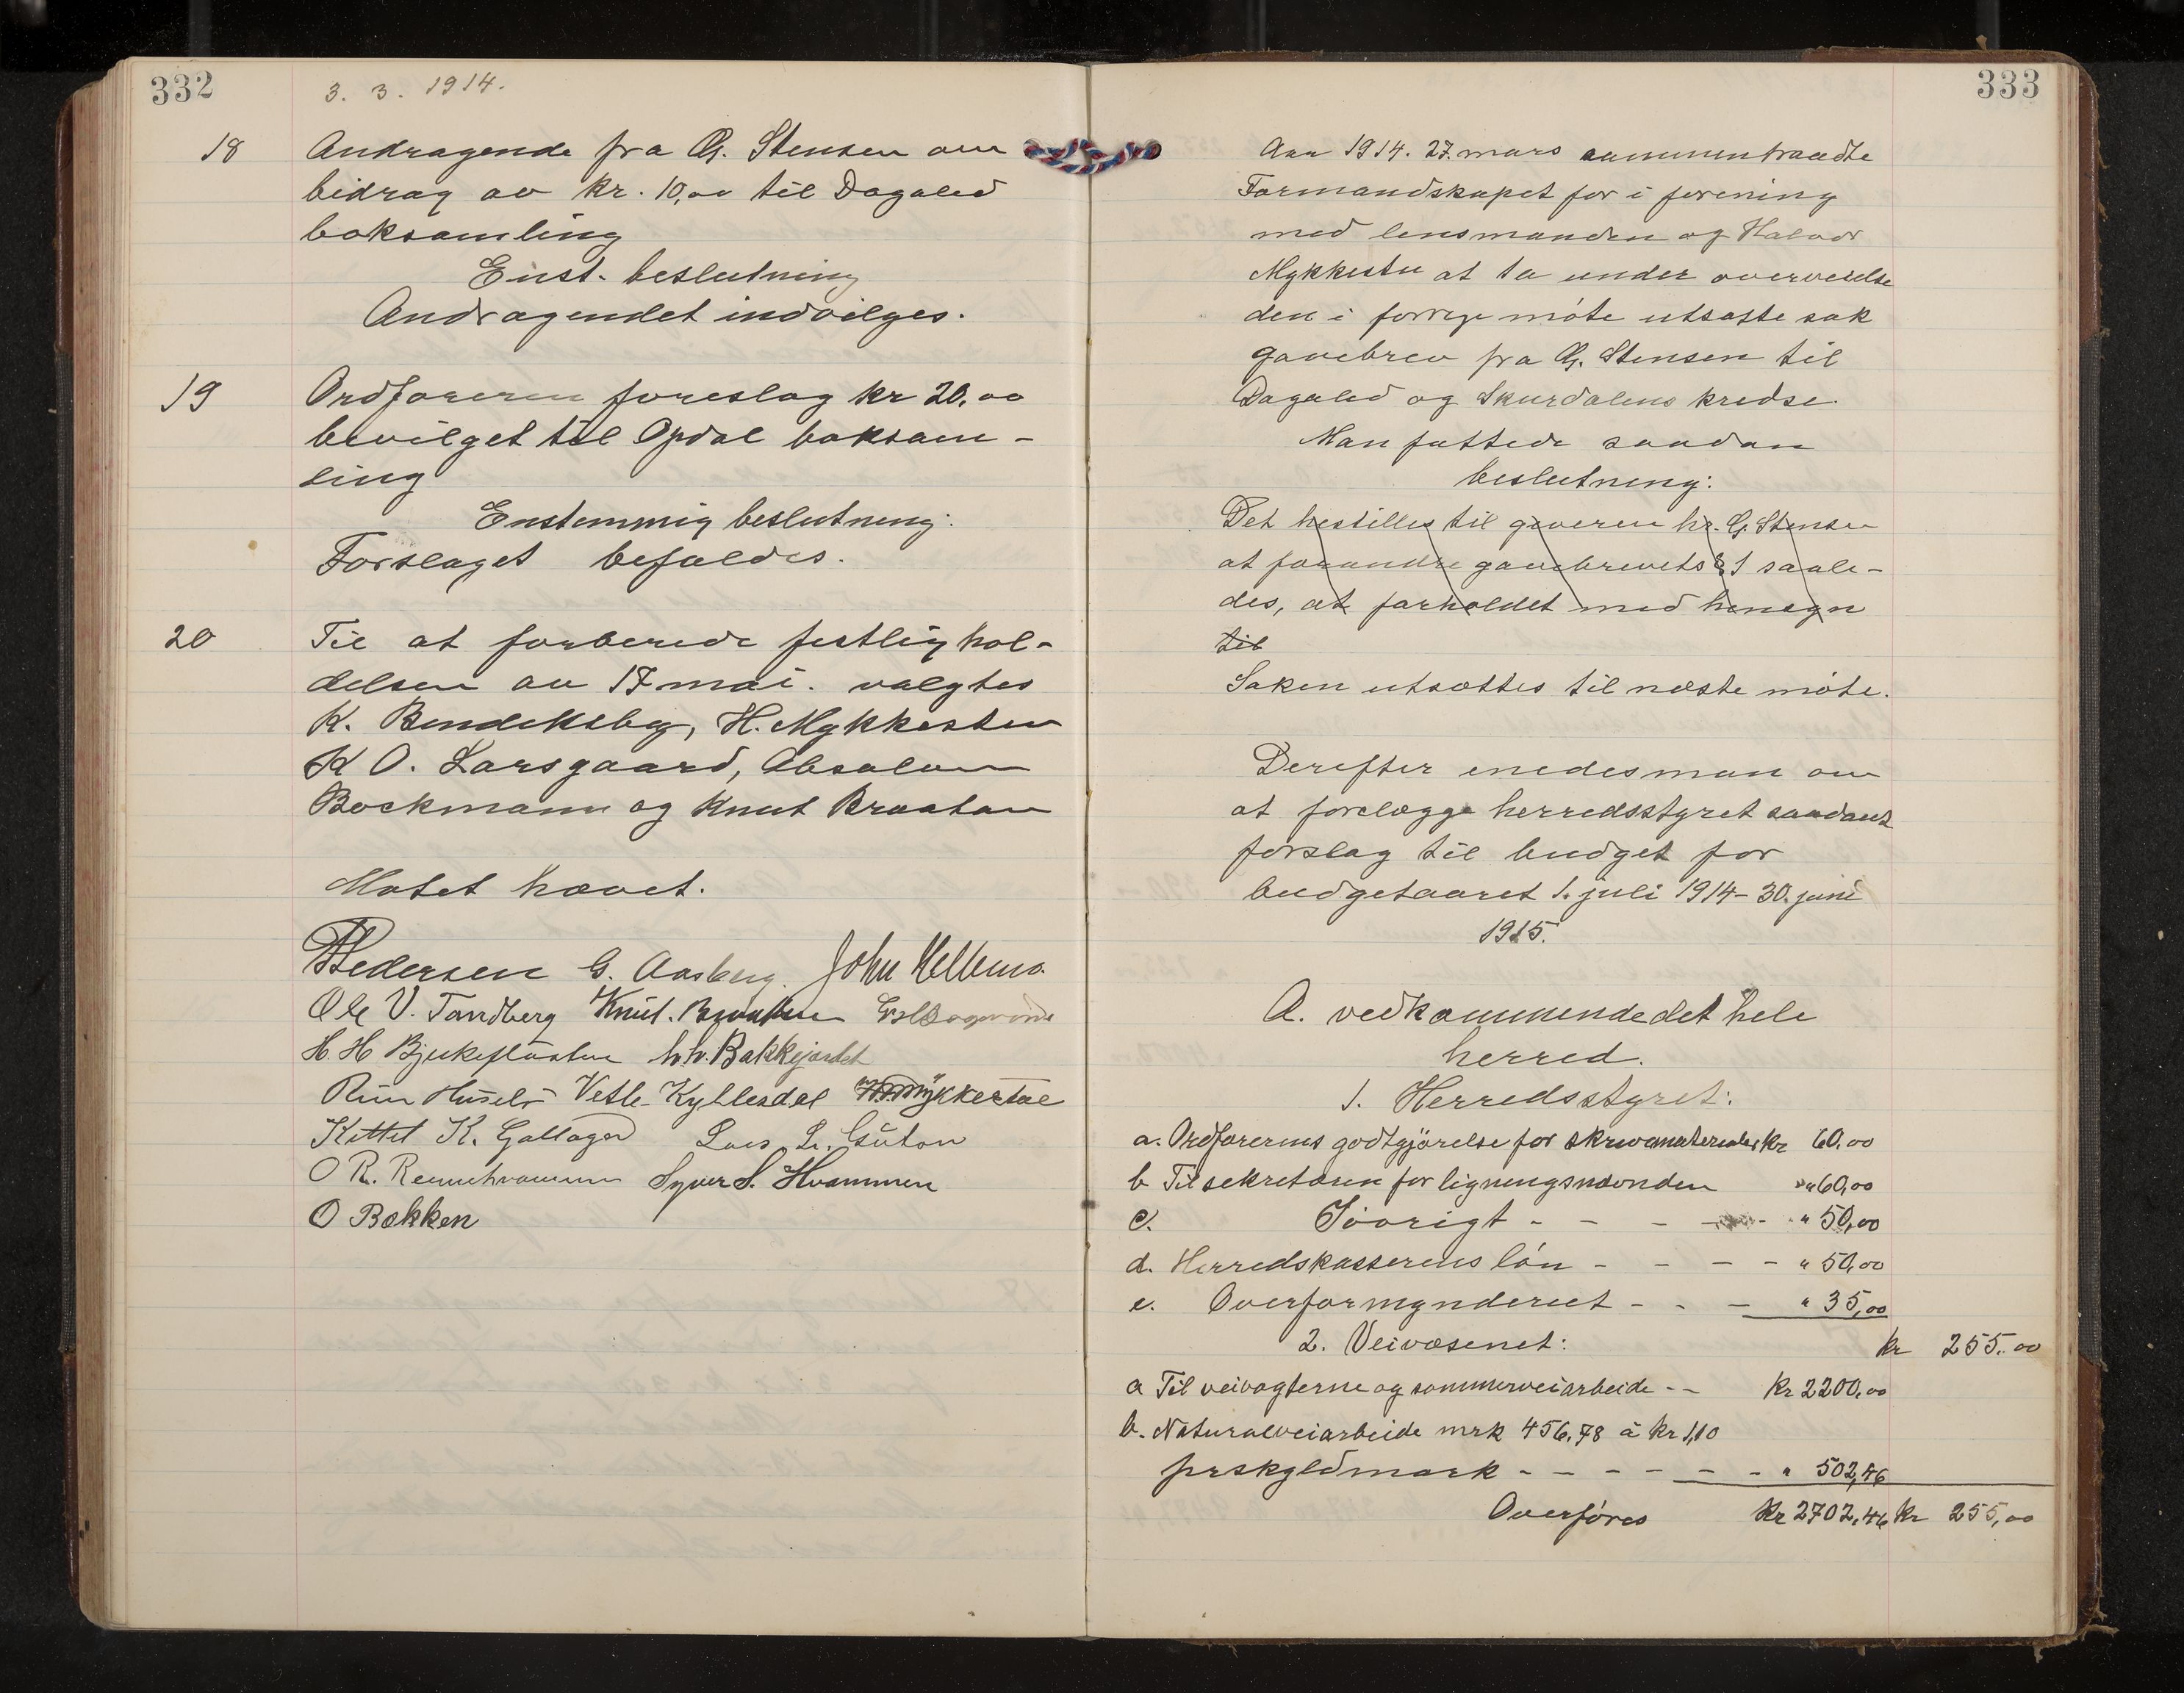 332
3. 3. 1914.
18 Andragende fra G. Stensen om
bidrag av kr. 10,00 til Dagalid
boksamling
Enst. beslutning
Andragendet indvilges.
19 Ordføreren foreslog kr 20,00
bevilget til Opdal boksam-
ling
Enstemmig beslutning:
Forslaget bifaldes.
20 Til at forberede festlighol-
delsen av 17 mai. valgtes
K. Bendiksby, H. Mykkestu
K O. Larsgaard, Absalon
Bockmann og Knut Braaten
Møtet hævet.
Pedersen G. Aasberg. John Mellemo.
Ole V. Tandberg Knut. Braaten
H. H Bjerkeflaaten h.h. Bakkejordet
Vetle Kyllesdal Mykkestue
Kittil K. Gallager Lars L.
O R. Syver S. Hvammen
O Bækken
333
Aar 1914. 27. mars sammentraadte
Formandskapet for i forening
med lensmanden og Halvor
Mykkestu at ta under overveielse
den i forrige møte utsatte sak
gavebrev fra G. Stensen til
Dagalid og Skurdalens kredse.
Man fattede saadan
beslutning:
Det hestilles til giveren hr. G. Stensen
at forandre gavebrevets § 1 saale-
des, at forholdet med hensyn
til
Saken utsættes til næste møte.
Derefter enedes man om
at forelægge herredsstyret saadant
forslag til budget for
budgetaaret 1. juli 1914 - 30. juni
1915.
A. vedkommende det hele
herred.
1. Herredsstyret:
a. Ordførerens godtgjørelse for skrivematerialer kr 60,00
b Til sekretæren for ligningsnævnden " 60,00
c. Iøvrigt - - - - - " 50,00
d. Herredskasserens løn - - - - " 50,00
e. Overformynderiet - - - " 35,00
2. Veivæsenet: kr 255.00
a Til veivogterne og sommerveiarbeide - - kr 2200,00
b. Naturalveiarbeide mrk 456,78 à kr 1,10
pr skyldmark - - - - - - " 502,46
Overføres kr 2702,46 kr 255,00